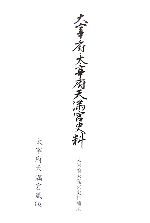 大宰府太宰府天満宮史料
太宰府天満宮蔵版